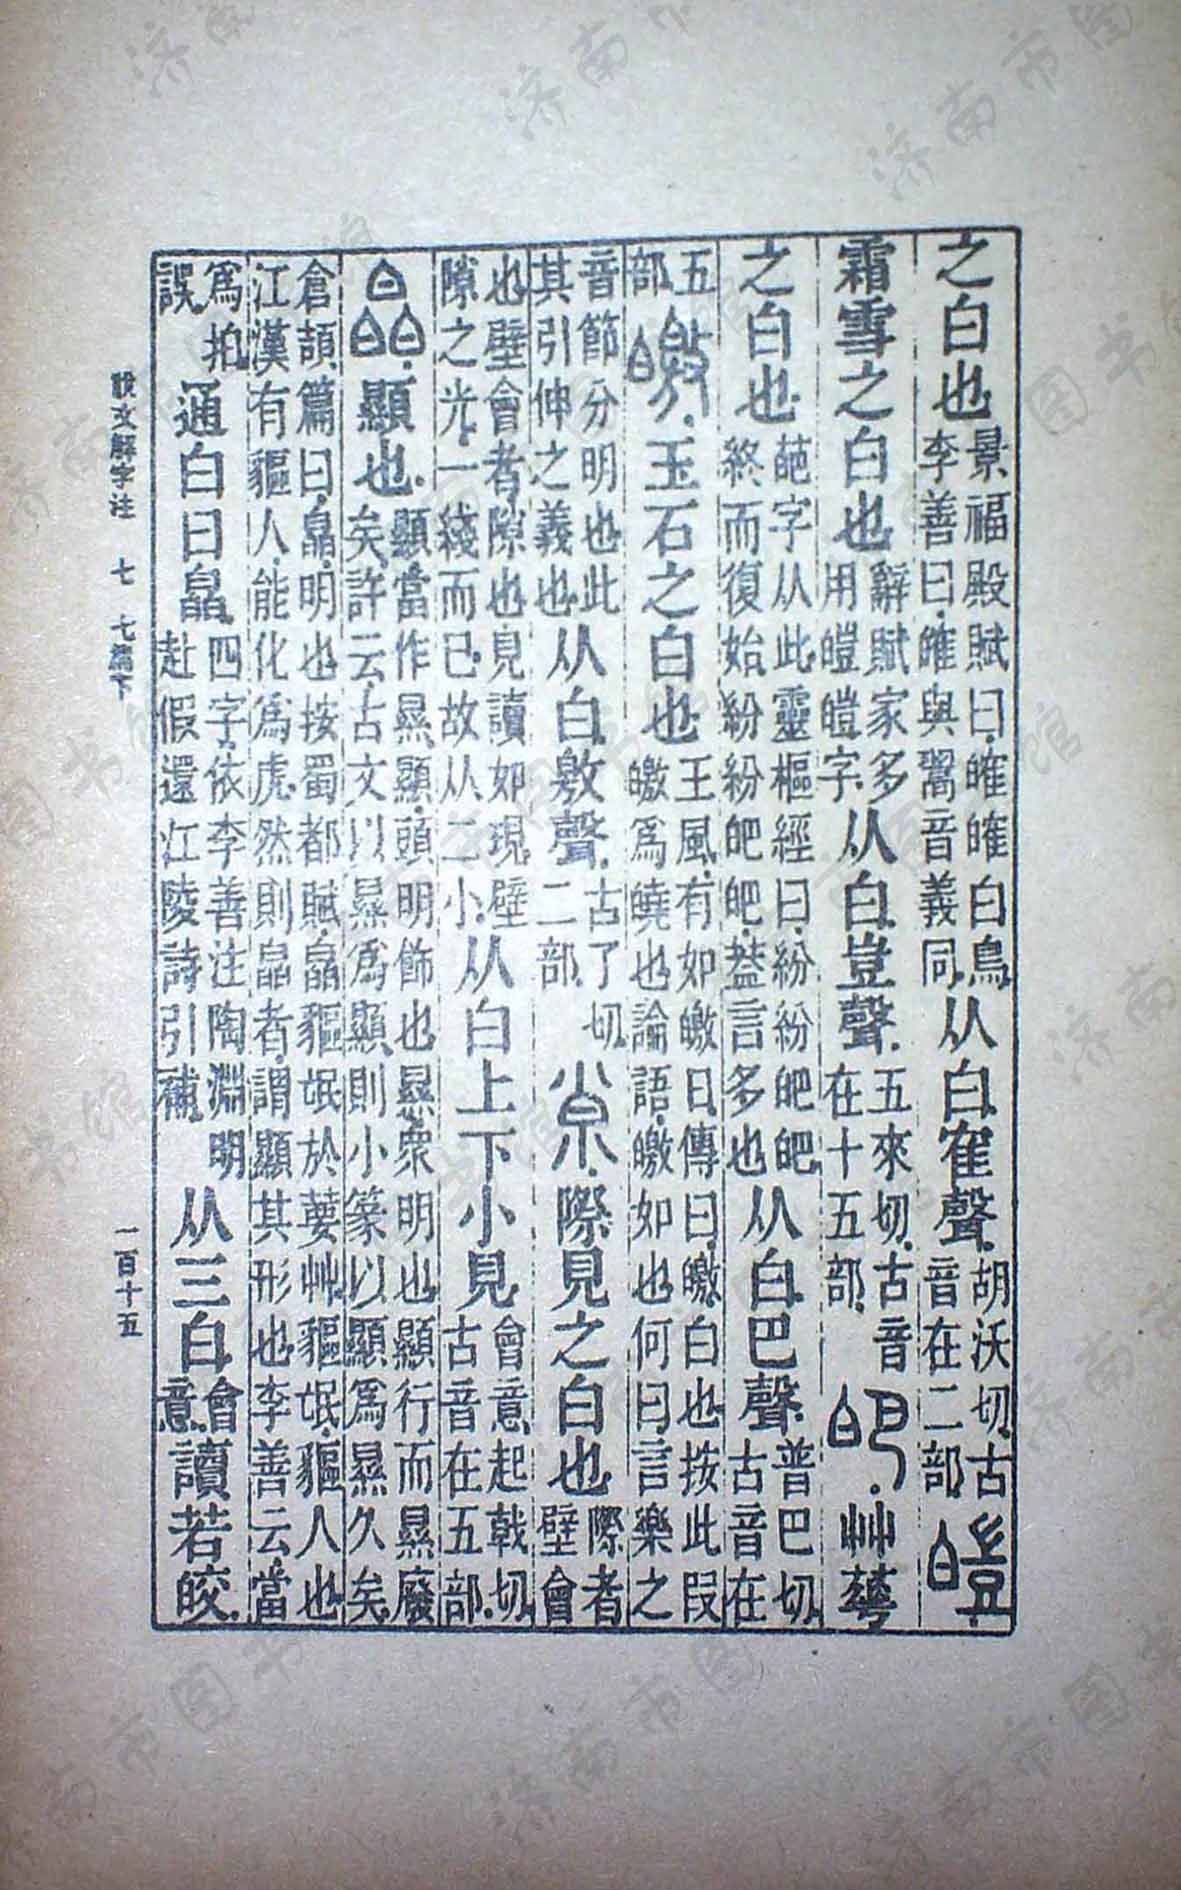 之白也景福殿賦曰。㿥㿥白鳥。李善曰。㿥與翯音義同。从白寉聲。胡沃切。古音在二部。皚
霜雪之白也辭賦家多用皚皚字。从白豈聲。五來切。古音在十五部。皅。艸蕐
之白也葩字从此。靈樞經曰。紛紛皅皅。終而復始。紛紛皅皅。葢言多也从白巴聲。普巴切。古音在
五部。皦。玉石之白也王風。有如皦日。傳曰。皦、白也。按此叚皦爲曉也。論語。皦如也。何曰。言樂之
音節分明也。此其引伸之義也从白敫聲。古了切。二部。𡭴。際見之白也際者、壁會
也。壁會者、隙也。見讀如現。壁隙之光。一綫而已。故从二小。从白。上下小見。會意。起戟切。古音在五部。
皛。顯也。顯當作㬎。顯、頭明飾也。㬎、衆明也。顯行而㬎廢矣。許云古文以㬎爲顯。則小篆以顯爲㬎久矣。
倉頡篇曰。皛、明也。按蜀都賦。皛貙氓於葽艸。貙氓、貙人也。江漢有貙人。能化爲虎。然則皛者、謂顯其形也。李善云當
爲拍誤。通白曰皛。四字依李善注陶淵明赴假還江陵詩引補。从三白。會意。讀若皎。
說文解字注 七 七篇下 一百十五
济南市图书馆